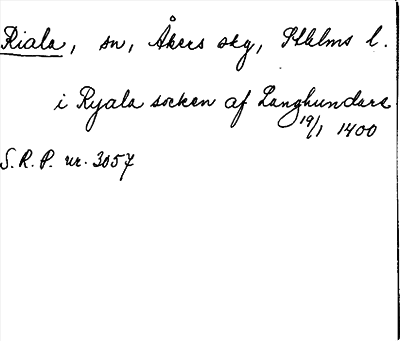 Riala, sn, Åkers skg, Sthlms l.
i Ryala socken af Langhundare
19/1 1400
S.R.P. nr. 3057